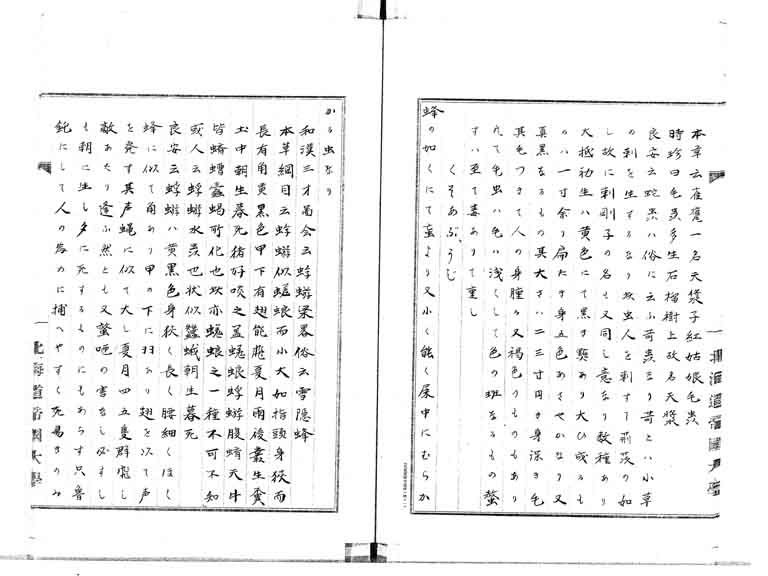 本草云雀甕一名天漿子紅姑娘毛虫
時珍曰毛虫多生石榴樹上故名天漿
良安云蛇虫ハ俗に云ふ苛虫なり苛とハ小草
の刺を生するなり此虫人を刺すて荊茨の如
し故に刺剛子の名も又同し意なり数種あり
大抵初生ハ黄色にて黒き点あり大ひ成るも
のハ一寸余り扁たき身五色あさやかなり又
真黒なるもの其大さハ二三寸円き身深き毛
其毛つきて人の身腫る又褐色のものもあり
凡て毛虫ハ毛浅くして色の斑なるもの螫
すハ至て毒ありて重し
くそあぶ、うじ
蜂の如くにて蛍より又小く能く屎中にむらか
かる虫なり
和漢三才図会云蜉蝣渠畧俗云雪隠蜂
本草綱目云蜉蝣似蜣蜋而小大如指頭身狭而
長有角黄黒色甲下有翅能飛夏月雨後叢生糞
土中朝生暮死猪好啖之蓋蜣蜋蜉蝣腹蜟天牛
皆蠐螬蠹蝎所化也此亦蜣蜋之一種不可不知
或人云蜉蝣水虫也状似蠶蛾朝生暮死
良安云蜉蝣ハ黄黒色身狭く長く腰細くほし
蜂に似て角あり甲の下に羽あり翅を以て声
を発す其声蝿に似て大し夏月四五隻群飛し
敵あたり逢ふ然とも又螫咂の害をなし必すし
も朝に生し夕に死するものにもあらす只魯
鈍にして人の為めに捕へやすく死易きのみ
北海道帝国大学
北海道帝国大学